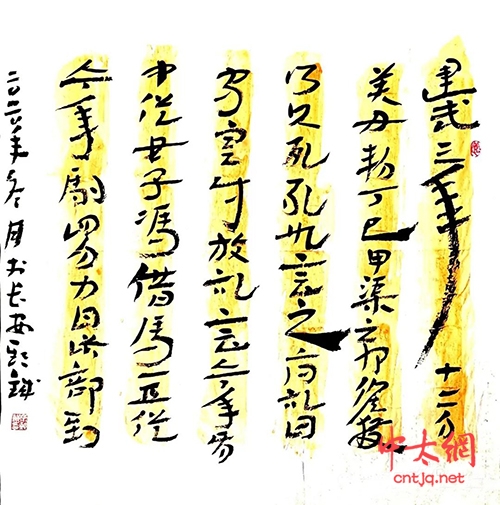 建武三年十二月
癸丑朔丁巳甲渠鄣候獲
叩頭死罪敢言之府記曰
守塞尉放記言今年正月
中從女子馮借馬一匹從
今年駒四月九日詣部到
二〇二〇年冬月书长安
中太網
cntjq.net